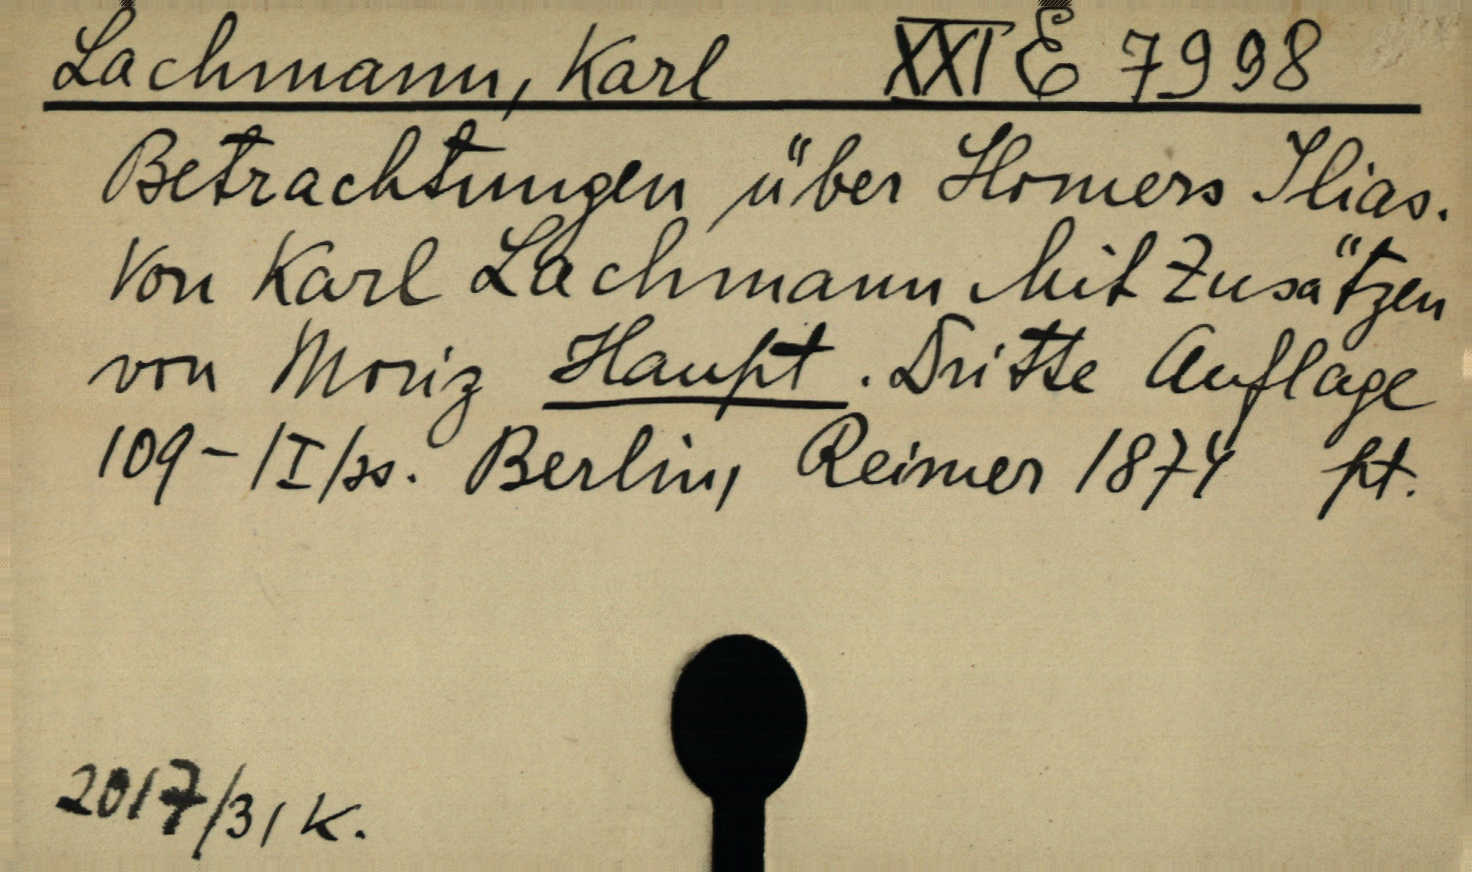 Lachmann, Karl XXI E 7998
Betrachtungen über Homers Ilias.
Von Karl Lachmann Mit Zusätzen
von Moriz Haupt. Dritte Auflage
109-/I/ss. Berlin, Reimer 1874 pt.
2017/31 K.